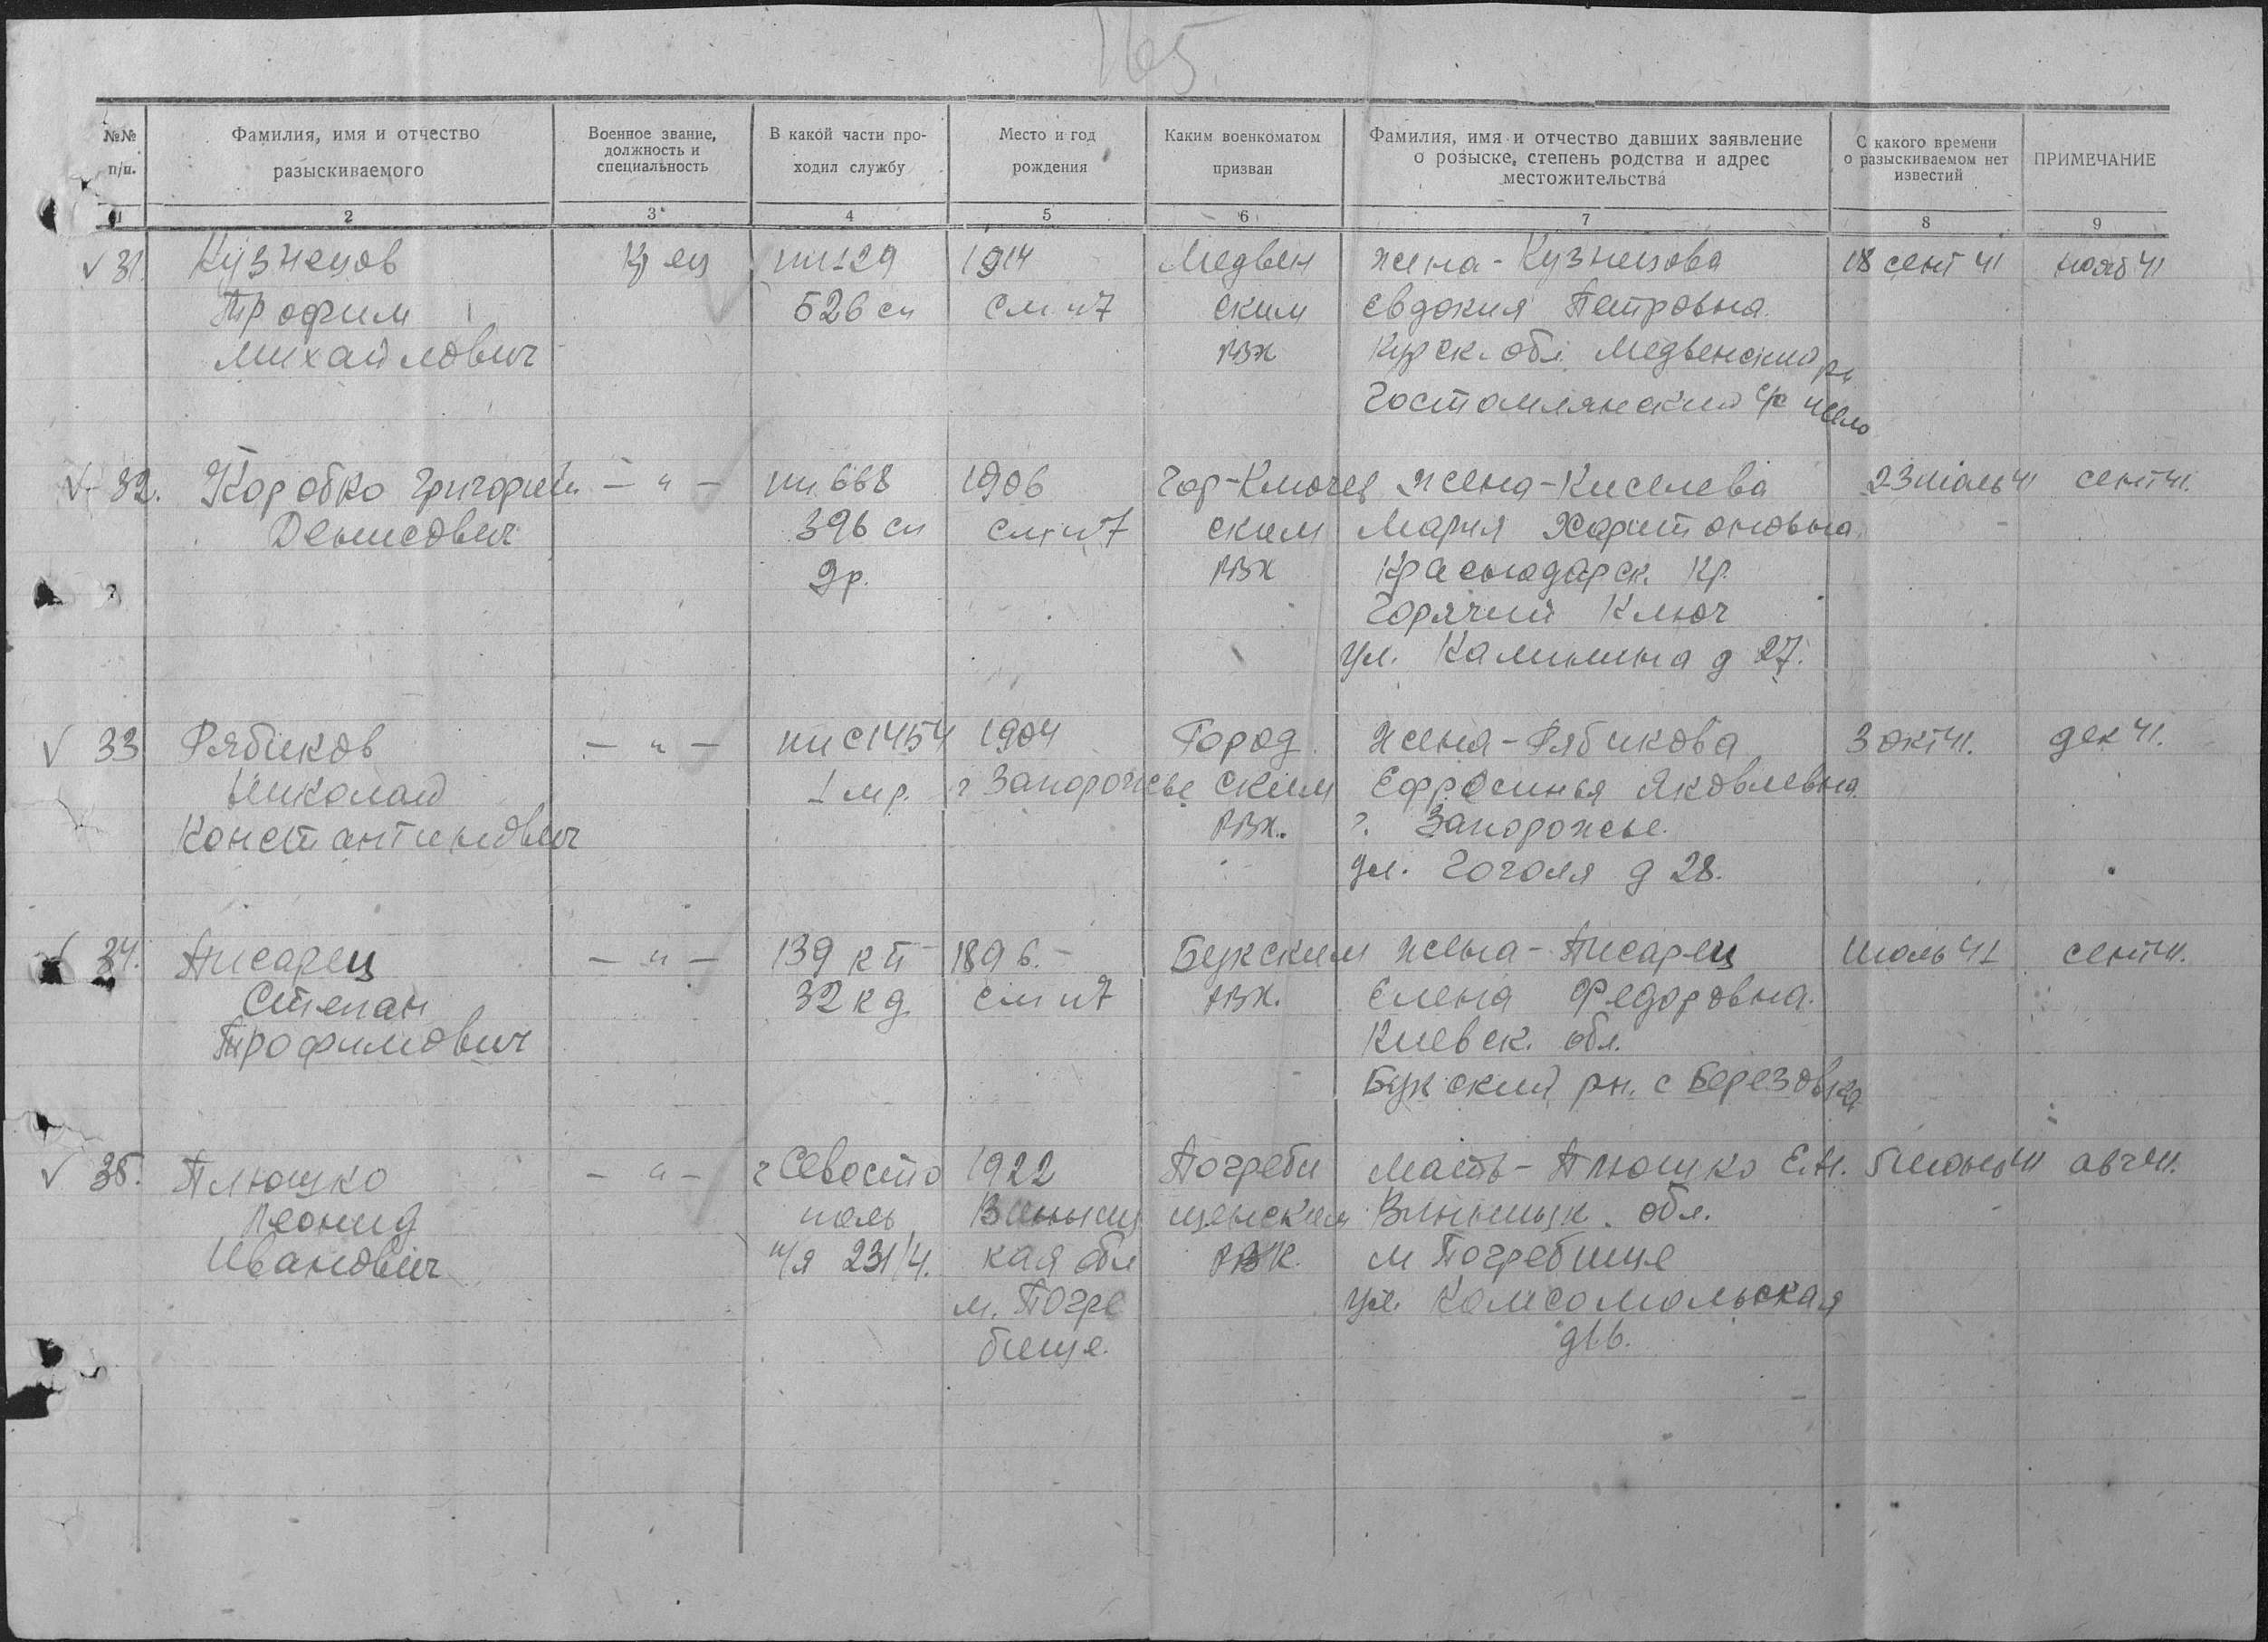 165.
№№ п/п.
Фамилия, имя и отчество разыскиваемого
Военное звание, должность и специальность
В какой части проходил службу
Место и год рождения
Каким военкоматом призван
Фамилия, имя и отчество давших заявление о розыске, степень родства и адрес местожительства
С какого времени о разыскиваемом нет известий
ПРИМЕЧАНИЕ
1 2 3 4 5 6 7 8 9
31. Кузнецов Кр ец 1914 Медвен жена - Кузнецова 18 сент 41 нояб 41
Трофим 526 сп см п7 ским Евдокия Петровна.
Михайлович РВК Курск. обл. Медвенский рн
Гостомлянский с/с
32. Коробко Григорий - " - пп 668 1906 Гор-Ключев жена - Киселева 23 июль 41 сент 41.
Денисович 396 сп см п7 ским Мария Харитоновна
др. РВК Краснодарск. кр.
Горячий Ключ
ул. Калинина д 27.
33 Рябиков - " - пп с 1454 1904 Город жена - Рябикова 3 окт 41. дек 41.
Николай 1 м р. г Запорожье ским Ефросинья Яковлевна.
Константинович РВК. г. Запорожье.
ул. Гоголя д 28.
34. Писарец - " - 139 кп 1896. Букским жена - Писарец июль 41 сент 41.
Степан 32 кд см п7 РВК. Елена Федоровна.
Трофимович Киевск. обл.
Букский рн. с Березовка
35. Плюшко - " - г Севасто 1922 Погреби мать - Плюшко Е.М. авг 41.
Леонид поль Винниц щенским Винницк. обл.
Иванович п/я 231/4. кая обл РВК. м Погребище
м. Погре ул. Комсомольская
бище. д 16.